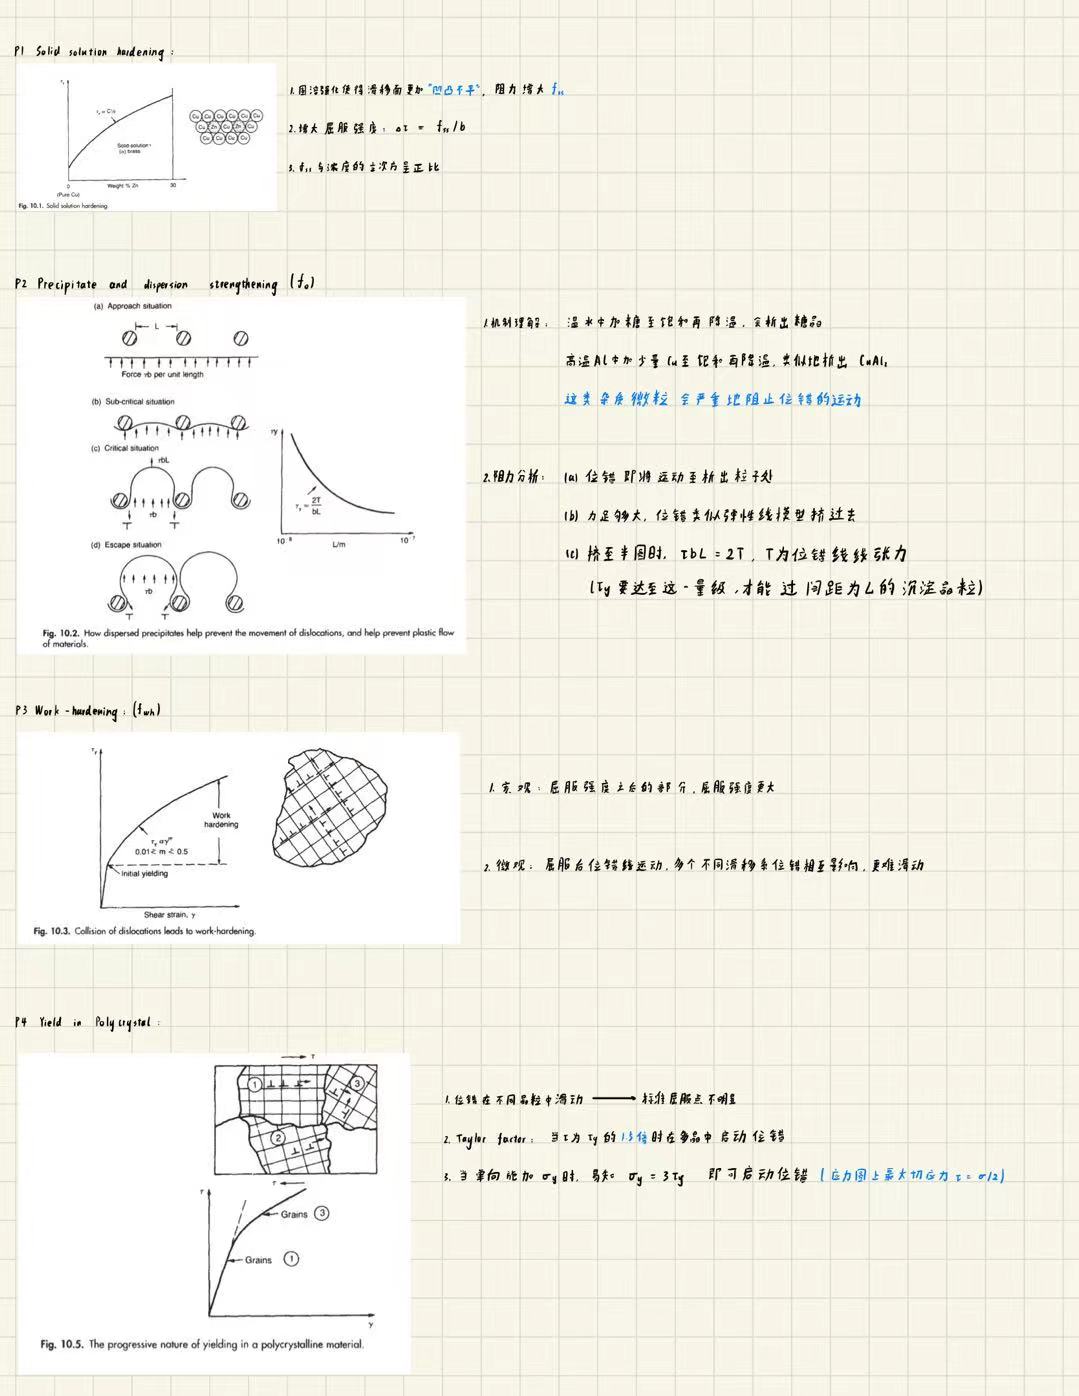 P1 Solid solution hardening :
τy
τy = C½
Solid solution :
(α) brass
0
Weight % Zn
30
(Pure Cu)
Cu Cu Cu Cu Cu Cu
Cu Zn Cu Zn Cu
Cu Cu Cu Cu
Fig. 10.1. Solid solution hardening.
1.固溶强化使得滑移面更加"凹凸不平", 阻力增大 fss
2.增大屈服强度: Δτ = fss/b
3. fss与浓度的 次方呈正比
P2 Precipitate and dispersion strengthening (fo)
(a) Approach situation
L
Force τb per unit length
(b) Sub-critical situation
(c) Critical situation
τbL
τb
T T
(d) Escape situation
τb
T T
τy
τy = 2T/bL
10⁻⁸ L/m 10⁻⁷
Fig. 10.2. How dispersed precipitates help prevent the movement of dislocations, and help prevent plastic flow
of materials.
1.机制理解: 温水中加糖至饱和再降温, 会析出糖晶
高温Al中加少量Cu至饱和再降温, 类似地析出 CuAl₂
这类杂质微粒会严重地阻止位错的运动
2.阻力分析: (a) 位错即将运动至析出粒子处
(b) 力足够大, 位错类似弹性线模型挤过去
(c) 挤至半圆时, τbL = 2T, T为位错线线张力
(τy 要达至这一量级, 才能过间距为L的沉淀晶粒)
P3 Work-hardening : (fwh)
τy
Work
hardening
τy αγᵐ
0.01 ≤ m ≤ 0.5
Initial yielding
Shear strain, γ
Fig. 10.3. Collision of dislocations leads to work-hardening.
1. 宏观: 屈服强度之后的部分, 屈服强度更大
2. 微观: 屈服后位错线运动, 多个不同滑移系位错相互影响, 更难滑动
P4 Yield in Polycrystal :
τ
1
3
2
τ
τ
Grains 3
Grains 1
γ
Fig. 10.5. The progressive nature of yielding in a polycrystalline material.
1.位错在不同晶粒中滑动 → 标准屈服点不明显
2. Taylor factor: 当τ为 τy 的1.5倍时在多晶中启动位错
3. 当单向施加 σy 时, 易知 σy = 3τy 即可启动位错 (应力圆上最大切应力 τ = σ/2)